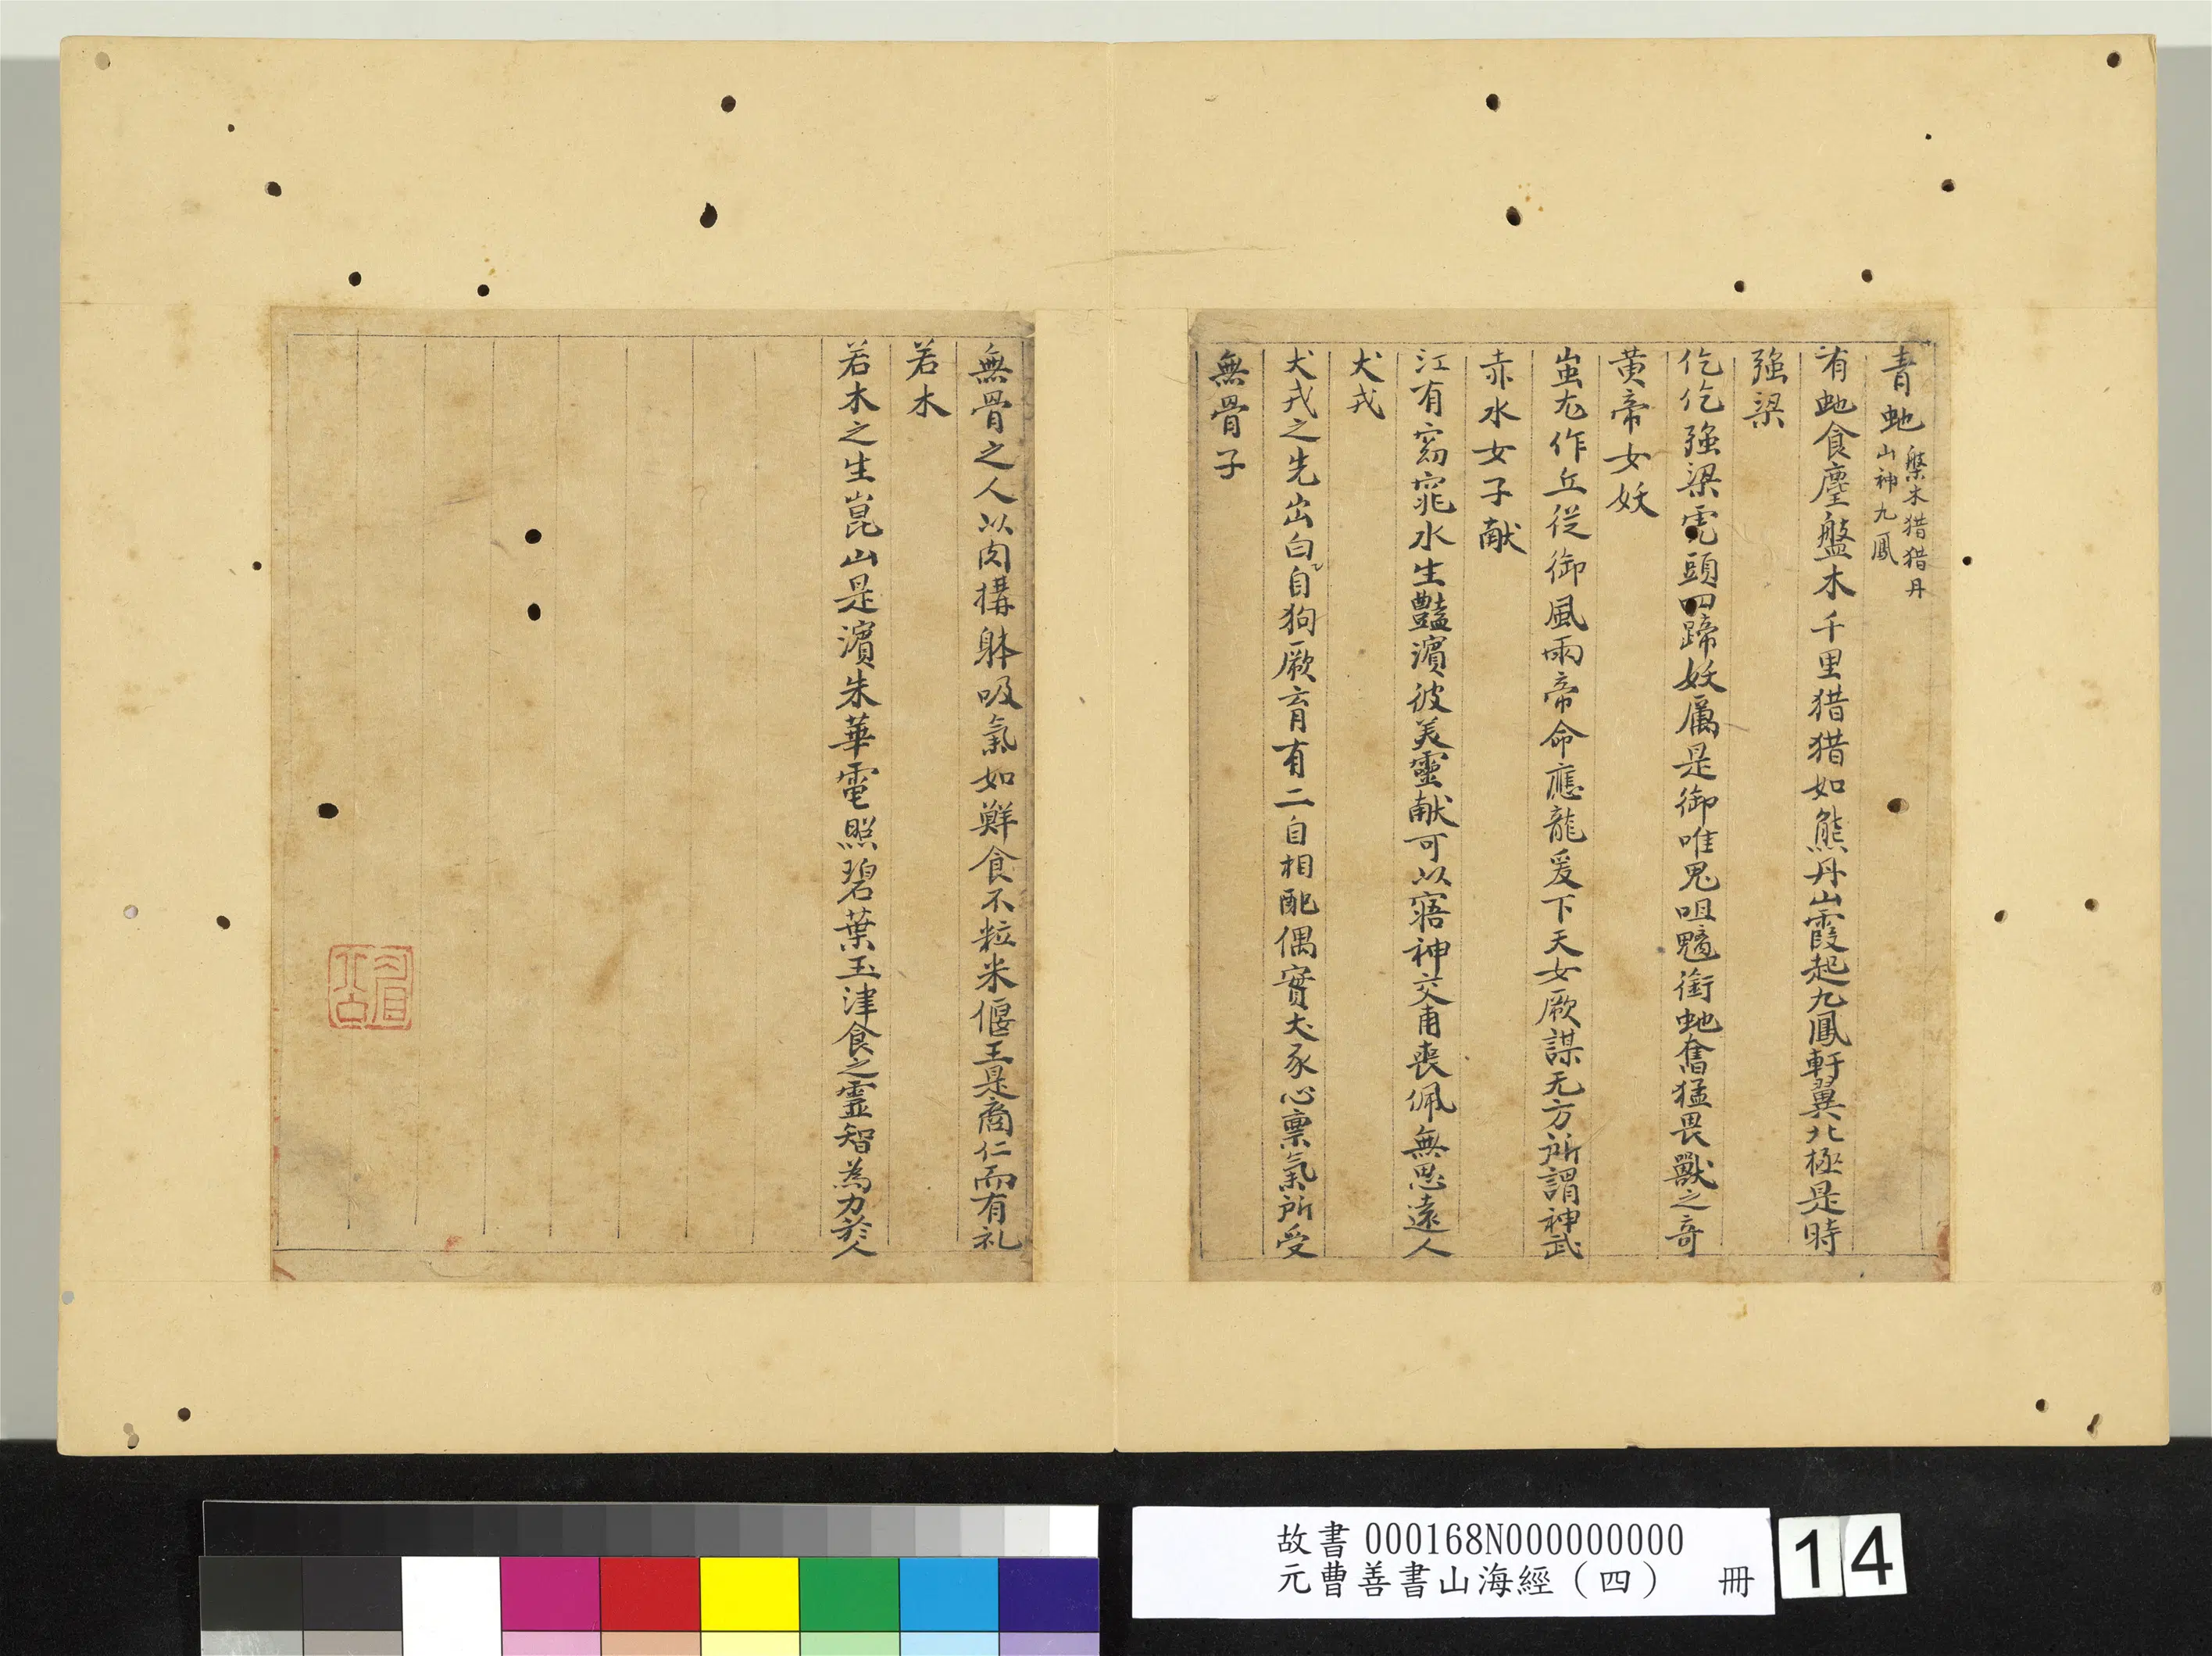 青虵 槃木猎猎丹山神九鳳
有虵食麈盤木千里猎猎如熊丹山霞起九鳳軒翼北極是時
強梁
仡仡強梁虎頭四蹄妖厲是御唯鬼咀魑銜虵奮猛畏獸之奇
黄帝女妖
蚩尤作丘從御風雨帝命應龍爰下天女厥謀无方所謂神武
赤水女子献
江有窈窕水生豔濵彼美靈献可以寤神交甫丧佩無思遠人
犬戎
犬戎之先出白自狗厥育有二自相配偶實犬豕心禀氣所受
無骨子
無骨之人以肉構躰吸氣如鮮食不粒米偃王是裔仁而有礼
若木
若木之生崑山是濵朱華電照碧葉玉津食之靈智為力於人
故書000168N000000000
元曹善書山海經（四） 冊
14